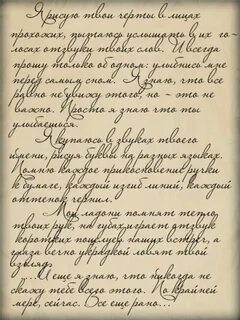 Я рисую твои черты в лицах
прохожих, пытаюсь услышать в их го-
лосах отзвуки твоих слов. И всегда
прошу только об одном: улыбнись мне
перед самым сном. Я знаю, что все
равно не увижу этого, но - это не
важно. Просто я знаю что ты
улыбаешься.
Я купаюсь в звуках твоего
имени, рисуя буквы на разных языках.
Помню каждое прикосновение ручки
к бумаге, каждый изгиб линий, каждый
оттенок чернил.
Мои ладони помнят тепло
твоих рук, на губах играет отзвук
коротких поцелуев наших встреч, а
глаза вечно украдкой ловят твой
взгляд...
...И еще я знаю, что никогда не
скажу тебе всего этого. По крайней
мере, сейчас. Все еще рано...